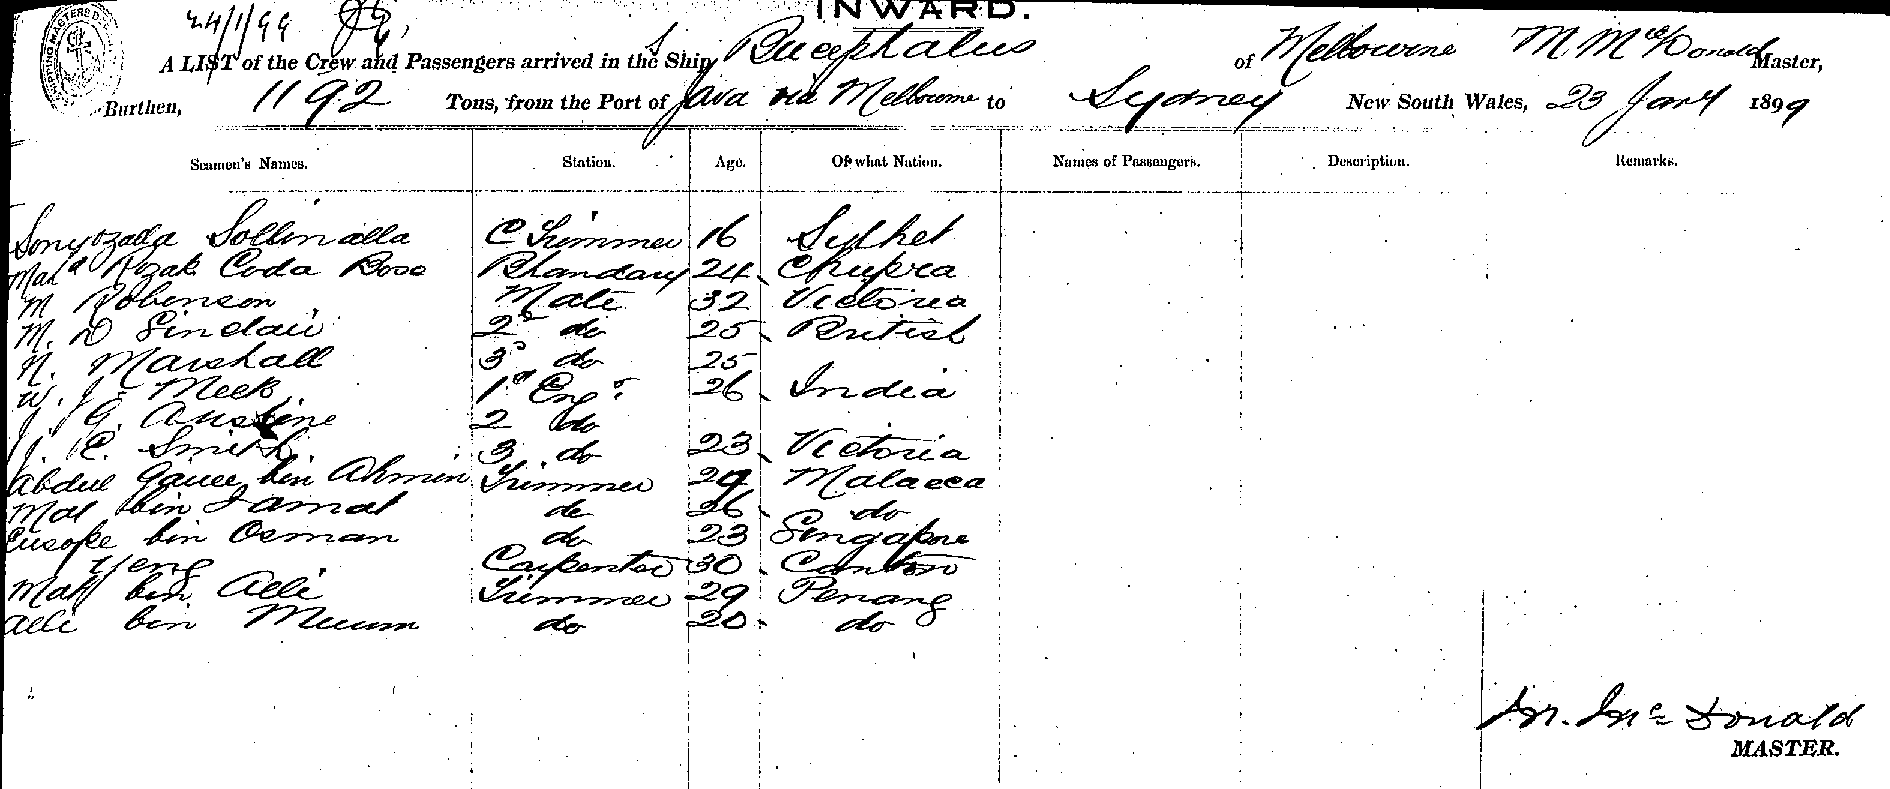 INWARD.
24/1/99
A LIST of the Crew and Passengers arrived in the S. Ship Bucephalus of Melbourne M McDonald Master,
Burthen, 1192 Tons, from the Port of Java via Melbourne to Sydney New South Wales, 23 Jany 1899
Seamen's Names. Station. Age. Of what Nation. Names of Passengers. Description. Remarks.
Sonyozalla Sollimalla C Trimmer 16 Sylhet
Mahd Rozak Coda Bose Bhandary 24 Chupra
M Robinson Mate 32 Victoria
M. D Sinclair 2d do 25 British
N. Marshall 3d do 25
W. J. Meek 1st Engr 26 India
J G. Austine 2 do
J. C. Smith 3 do 23 Victoria
Abdul bin Ahmin Trimmer 29 Malacca
Mat bin Jamat do 26 do
Eusope bin Osman do 23 Singapore
Yeng Carpenter 30 Canton
Mat bin Alli Trimmer 29 Penang
Alli bin do 20 do
M. McDonald
MASTER.